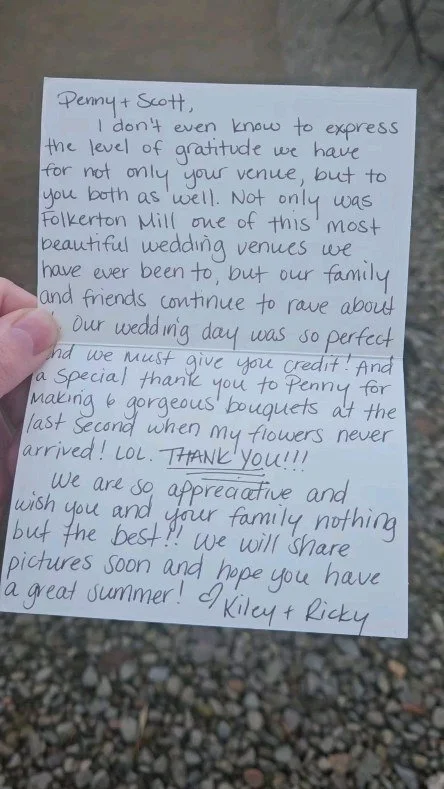 Penny + Scott,
I don't even know to express
the level of gratitude we have
for not only your venue, but to
you both as well. Not only was
Folkerton Mill one of this most
beautiful wedding venues we
have ever been to, but our family
and friends continue to rave about
Our wedding day was so perfect
and we must give you credit! And
a special thank you to Penny for
making 6 gorgeous bouquets at the
last second when my flowers never
arrived! LOL. THANK YOU!!!
We are so appreciative and
wish you and your family nothing
but the best!! We will share
pictures soon and hope you have
a great summer! ♡ Kiley + Ricky